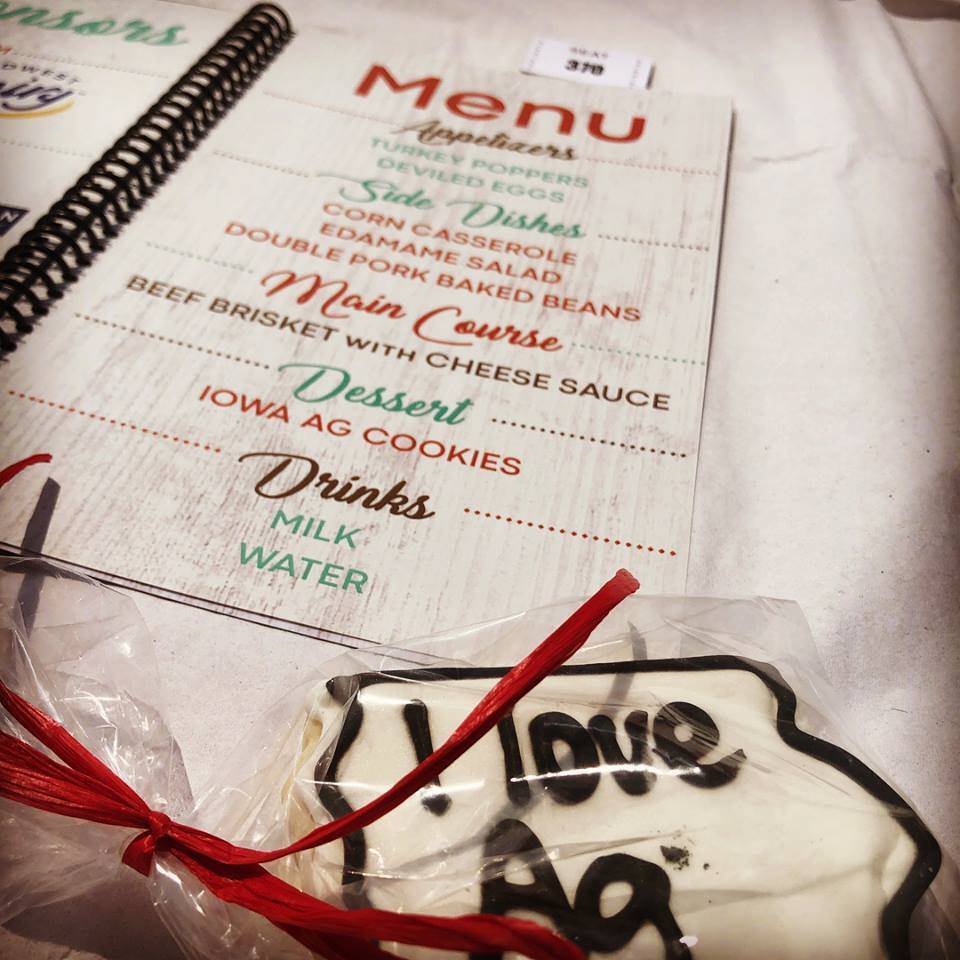 Menu
Appetizers
TURKEY POPPERS
DEVILED EGGS
Side Dishes
CORN CASSEROLE
EDAMAME SALAD
DOUBLE PORK BAKED BEANS
Main Course
BEEF BRISKET WITH CHEESE SAUCE
Dessert
IOWA AG COOKIES
Drinks
MILK
WATER
SEAT
370
I love
Ag